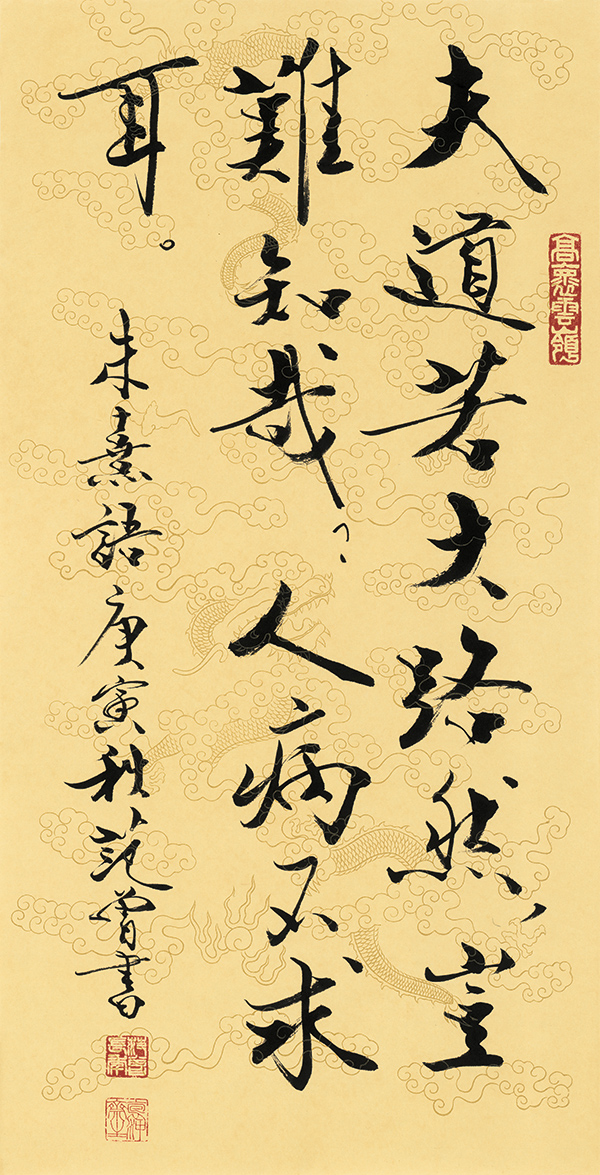 夫道若大路然，豈
難知哉？人病不求
耳。
朱熹語庚寅秋范曾書